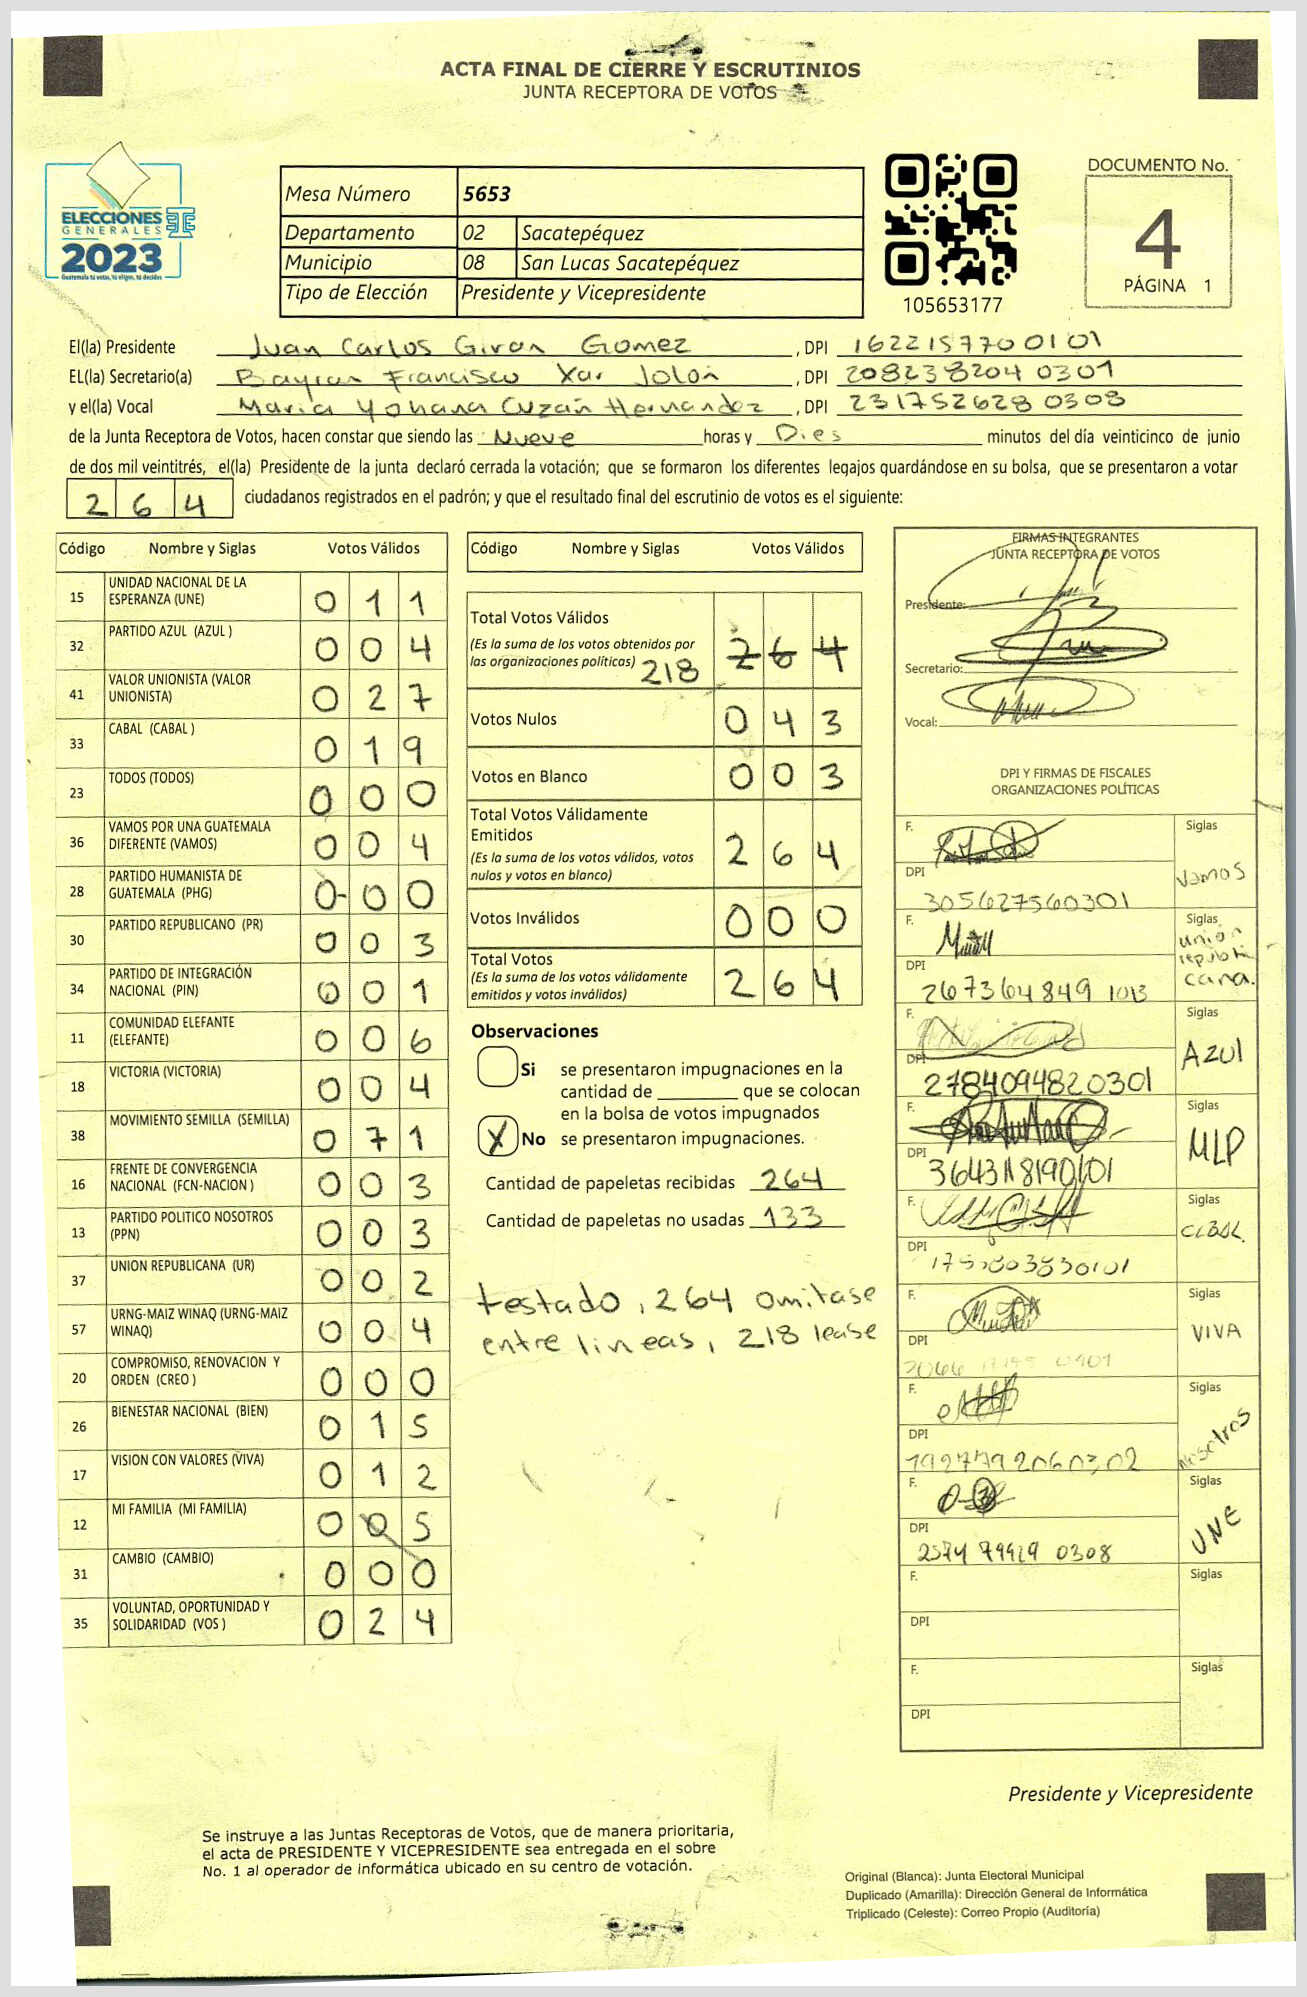 ACTA FINAL DE CIERRE Y ESCRUTINIOS
JUNTA RECEPTORA DE VOTOS
ELECCIONES
GENERALES
2023
Guatemala tú votas, tú eliges, tú decides
Mesa Número 5653
Departamento 02 Sacatepéquez
Municipio 08 San Lucas Sacatepéquez
Tipo de Elección Presidente y Vicepresidente
105653177
DOCUMENTO No.
4
PÁGINA 1
El(la) Presidente Juan Carlos Giron Gomez, DPI 1622157700101
EL(la) Secretario(a) Bayron Francisco Xar Jolon, DPI 208238204 0301
y el(la) Vocal Maria Yohana Cuzán Hernandez, DPI 231752628 0308
de la Junta Receptora de Votos, hacen constar que siendo las Nueve horas y Dies minutos del día veinticinco de junio
de dos mil veintitrés, el(la) Presidente de la junta declaró cerrada la votación; que se formaron los diferentes legajos guardándose en su bolsa, que se presentaron a votar
264 ciudadanos registrados en el padrón; y que el resultado final del escrutinio de votos es el siguiente:
Código Nombre y Siglas Votos Válidos
15 UNIDAD NACIONAL DE LA ESPERANZA (UNE) 011
32 PARTIDO AZUL (AZUL ) 004
41 VALOR UNIONISTA (VALOR UNIONISTA) 027
33 CABAL (CABAL ) 019
23 TODOS (TODOS) 000
36 VAMOS POR UNA GUATEMALA DIFERENTE (VAMOS) 004
28 PARTIDO HUMANISTA DE GUATEMALA (PHG) 000
30 PARTIDO REPUBLICANO (PR) 003
34 PARTIDO DE INTEGRACIÓN NACIONAL (PIN) 001
11 COMUNIDAD ELEFANTE (ELEFANTE) 006
18 VICTORIA (VICTORIA) 004
38 MOVIMIENTO SEMILLA (SEMILLA) 071
16 FRENTE DE CONVERGENCIA NACIONAL (FCN-NACION ) 003
13 PARTIDO POLITICO NOSOTROS (PPN) 003
37 UNION REPUBLICANA (UR) 002
57 URNG-MAIZ WINAQ (URNG-MAIZ WINAQ) 004
20 COMPROMISO, RENOVACION Y ORDEN (CREO ) 000
26 BIENESTAR NACIONAL (BIEN) 015
17 VISION CON VALORES (VIVA) 012
12 MI FAMILIA (MI FAMILIA) 005
31 CAMBIO (CAMBIO) 000
35 VOLUNTAD, OPORTUNIDAD Y SOLIDARIDAD (VOS ) 024
Código Nombre y Siglas Votos Válidos
Total Votos Válidos
(Es la suma de los votos obtenidos por
las organizaciones políticas) 218 264
Votos Nulos 043
Votos en Blanco 003
Total Votos Válidamente
Emitidos
(Es la suma de los votos válidos, votos
nulos y votos en blanco) 264
Votos Inválidos 000
Total Votos
(Es la suma de los votos válidamente
emitidos y votos inválidos) 264
Observaciones
Si se presentaron impugnaciones en la
cantidad de ________ que se colocan
en la bolsa de votos impugnados
X No se presentaron impugnaciones.
Cantidad de papeletas recibidas 264
Cantidad de papeletas no usadas 133
testado, 264 omitase
entre lineas, 218 lease
FIRMAS INTEGRANTES
JUNTA RECEPTORA DE VOTOS
Presidente:
Secretario:
Vocal:
DPI Y FIRMAS DE FISCALES
ORGANIZACIONES POLÍTICAS
F. Siglas
Vamos
DPI
305627560301
F. Siglas
unión
republi
cana.
DPI
267364849 1013
F. Siglas
AZUL
DPI
2784094820301
F. Siglas
MLP
DPI
F. Siglas
CABAL
DPI
F. Siglas
VIVA
DPI
F. Siglas
Nosotros
DPI
F. Siglas
UNE
DPI
F. Siglas
DPI
F. Siglas
DPI
Presidente y Vicepresidente
Se instruye a las Juntas Receptoras de Votos, que de manera prioritaria,
el acta de PRESIDENTE Y VICEPRESIDENTE sea entregada en el sobre
No. 1 al operador de informática ubicado en su centro de votación.
Original (Blanca): Junta Electoral Municipal
Duplicado (Amarilla): Dirección General de Informática
Triplicado (Celeste): Correo Propio (Auditoría)